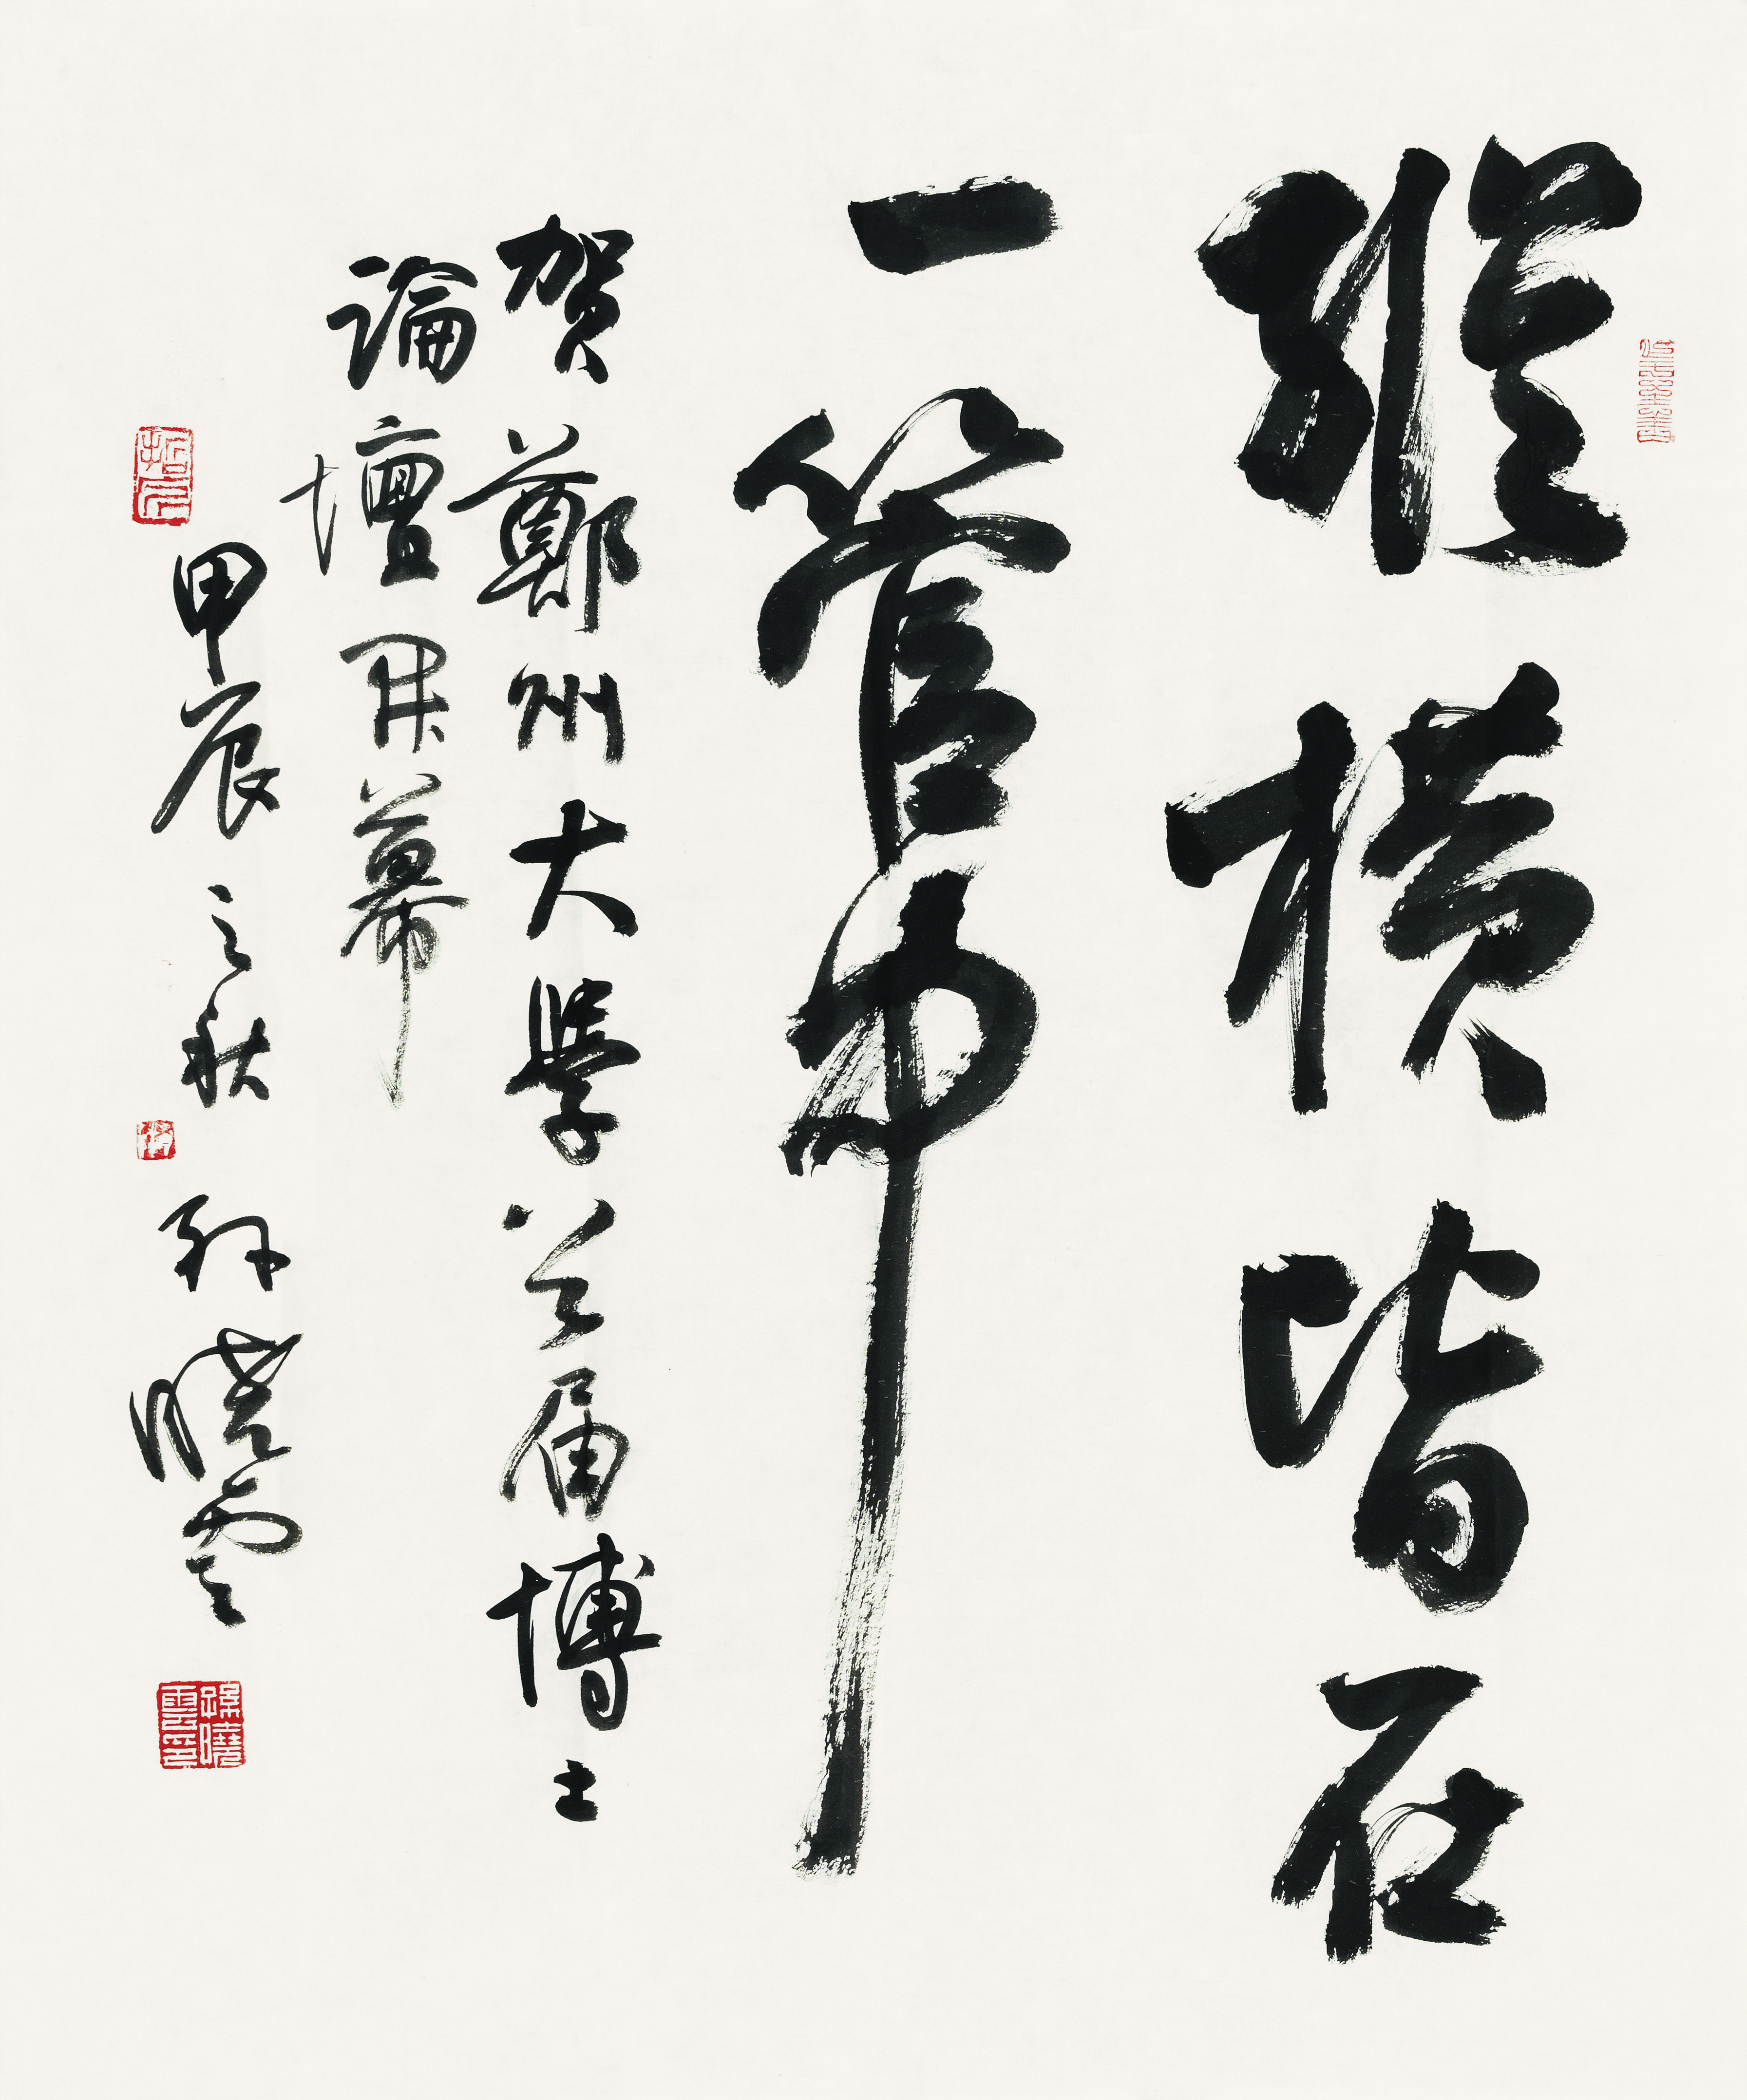 縱橫皆在
一管中
賀鄭州大學首届博士
論壇開幕
甲辰之秋 孫曉雲
孫曉雲印